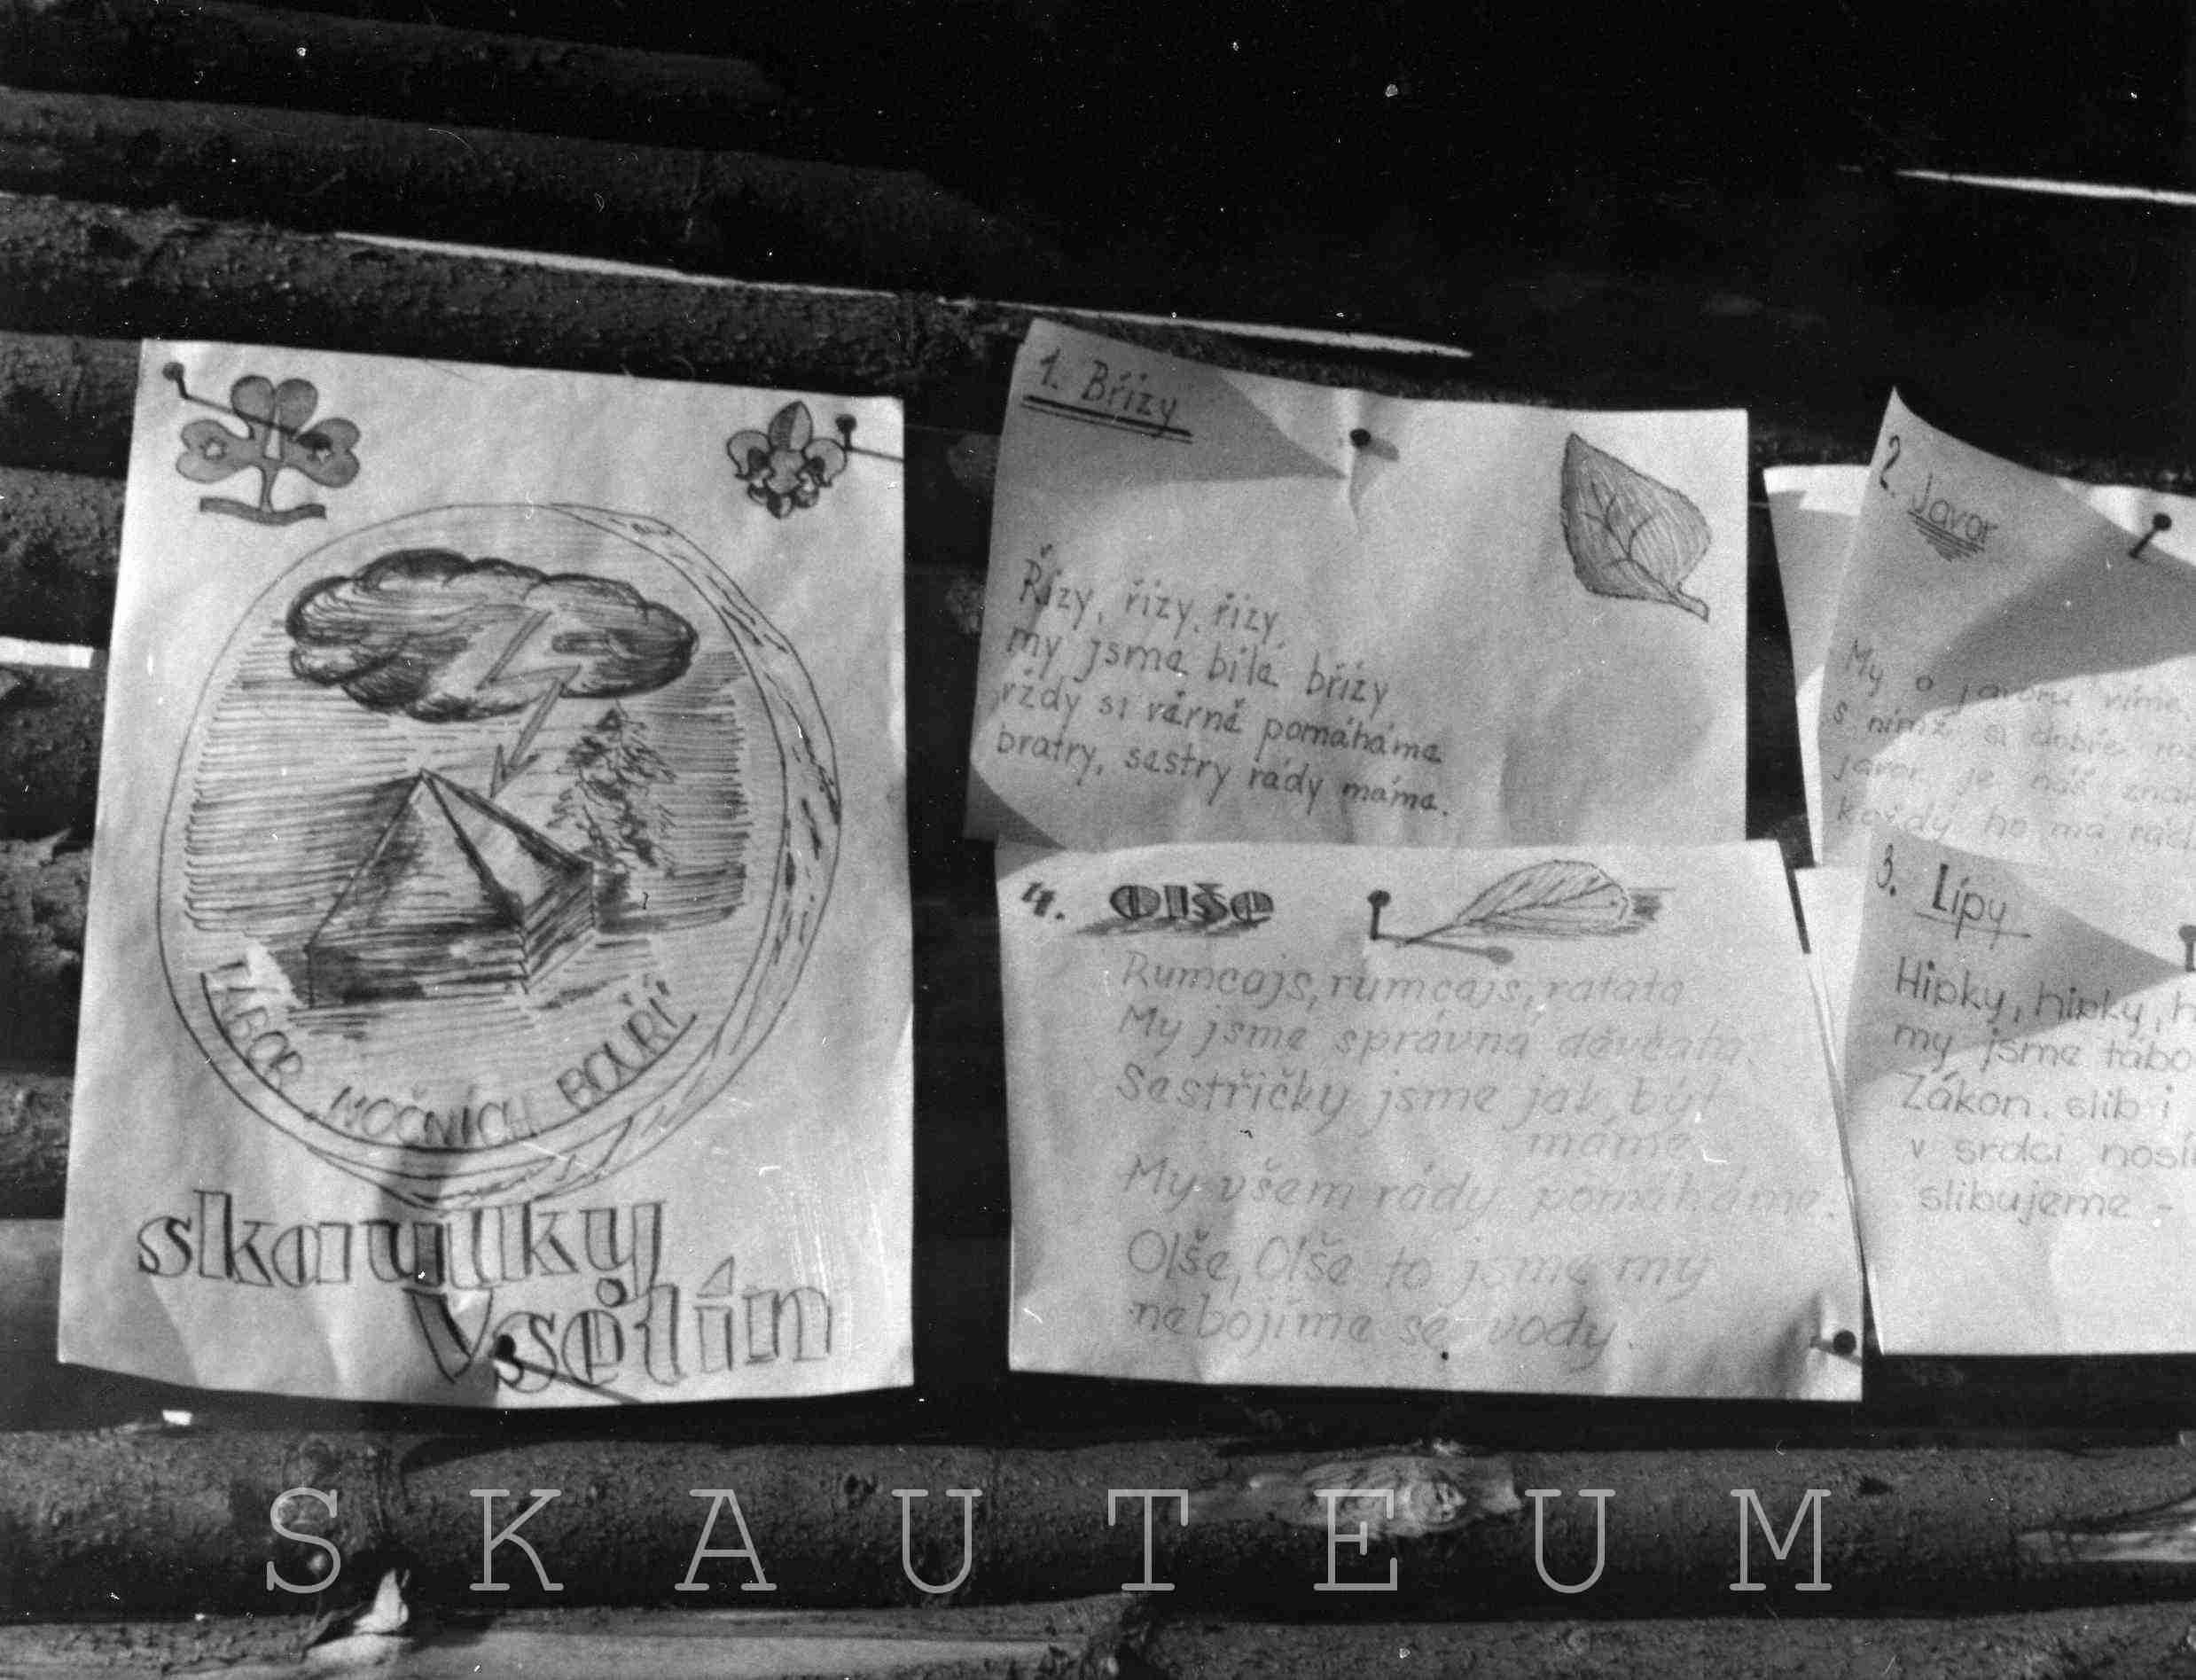 TÁBOR NOČNÍCH BOUŘÍ
skautky
Vsetín
1. Břízy
Řízy, řízy, řízy,
my jsme bílé břízy
vždy si věrně pomáháme
bratry, sestry rády máme.
2. Javor
My o javoru víme,
s nímž si dobře
javor je náš znak
každý ho má rád
4. Olše
Rumcajs, rumcajs, ratata
My jsme správná děvčata.
Sestřičky jsme jak být
máme
My všem rády pomáháme.
Olše, Olše to jsme my
nebojíme se vody.
3. Lípy
Hipky, hipky, h
my jsme tábo
Zákon, slib i
v srdci nosí
slibujeme -
SKAUTEUM